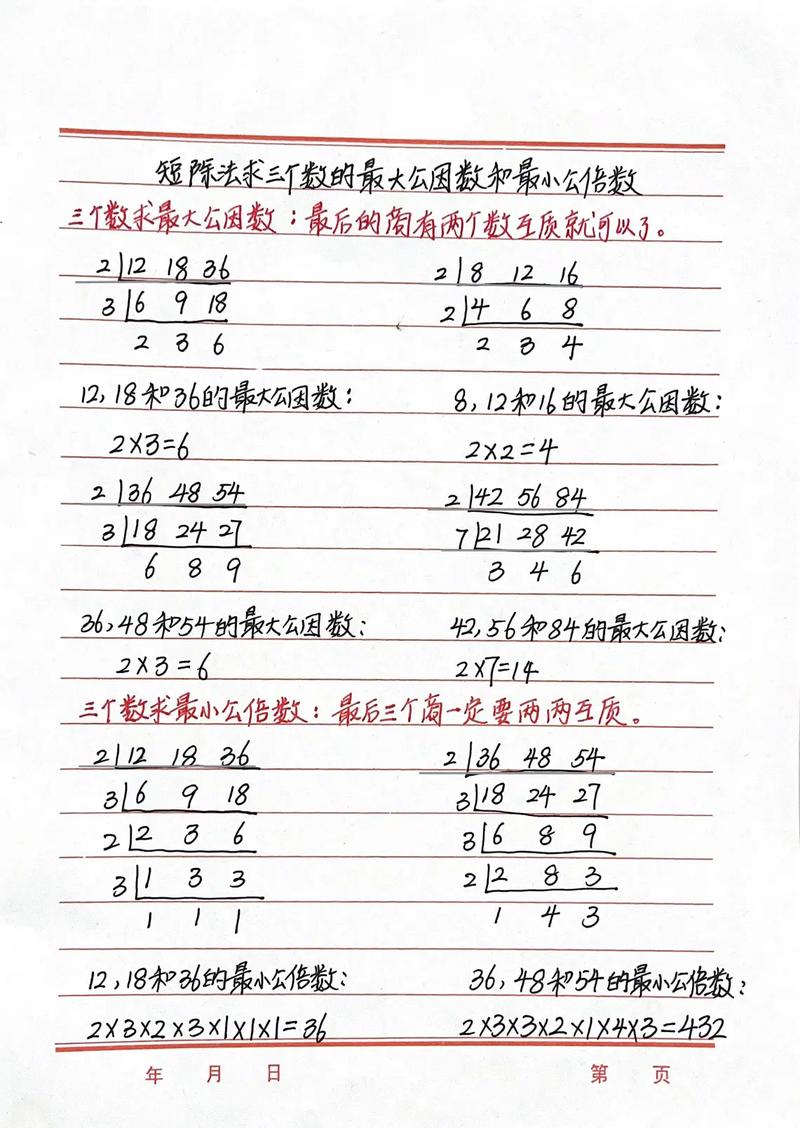 短除法求三个数的最大公因数和最小公倍数
三个数求最大公因数：最后的商有两个数互质就可以了。
2 12 18 36
3 6 9 18
2 3 6
2 8 12 16
2 4 6 8
2 3 4
12,18和36的最大公因数：
2×3=6
8,12和16的最大公因数：
2×2=4
2 36 48 54
3 18 24 27
6 8 9
2 42 56 84
7 21 28 42
3 4 6
36,48和54的最大公因数：
2×3=6
42,56和84的最大公因数：
2×7=14
三个数求最小公倍数：最后三个商一定要两两互质。
2 12 18 36
3 6 9 18
2 2 3 6
3 1 3 3
1 1 1
2 36 48 54
3 18 24 27
3 6 8 9
2 2 8 3
1 4 3
12,18和36的最小公倍数：
2×3×2×3×1×1×1=36
36,48和54的最小公倍数：
2×3×3×2×1×4×3=432
年 月 日 第 页